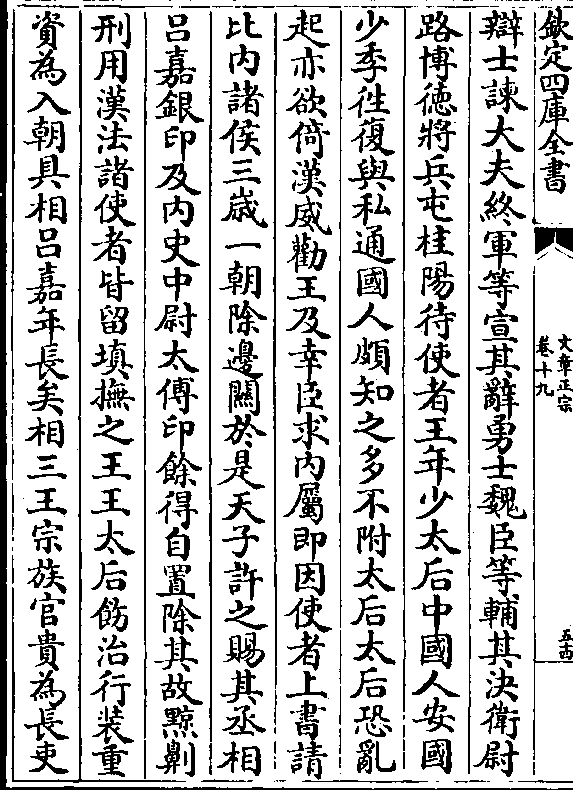 欽定四庫全書
文章正宗
卷十九
五十四
辯士諫大夫終軍等宣其辭勇士魏臣等輔其決衛尉
路博德將兵屯桂陽待使者王年少太后中國人安國
少季徃復與私通國人頗知之多不附太后太后恐亂
起亦欲倚漢威勸王及幸臣求內屬即因使者上書請
比內諸侯三嵗一朝除邊關於是天子許之賜其丞相
呂嘉銀印及內史中尉太傅印餘得自置除其故黥劓
刑用漢法諸使者皆留填撫之王王太后飭治行裝重
資為入朝具相呂嘉年長矣相三王宗族官貴為長吏